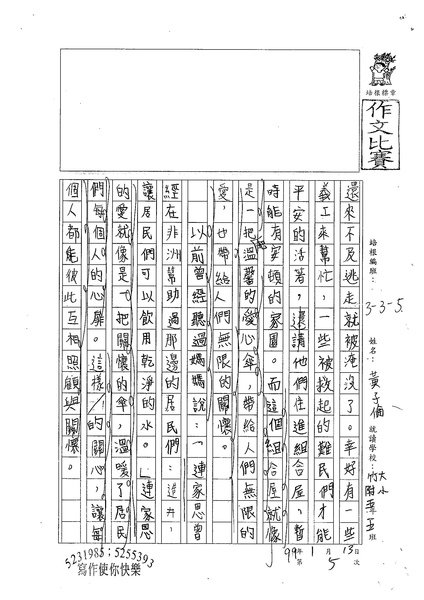 培根標章
作文比賽
培根編班：3-3-5
姓名：黃子倫
就讀學校：竹大附小
班
還來不及逃走就被淹沒了。幸好有一些
義工來幫忙，一些被救起的難民們才能
平安的活著，還請他們住進組合屋，暫
時能有安頓的家園。而這個組合屋就像
是一把溫馨的愛心傘，帶給人們無限的
愛，也帶給人們無限的關懷。
以前曾經聽過媽媽說：「連家恩曾
經在非洲幫助過那邊的居民們：造井，
讓居民們可以飲用乾淨的水。」連家恩
的愛就像是一把關懷的傘，溫暖了居民
們每個人的心扉。這樣的關心，讓每
個人都能彼此互相照顧與關懷。
99年1月13日
第5次
5231985；5255393
寫作使你快樂